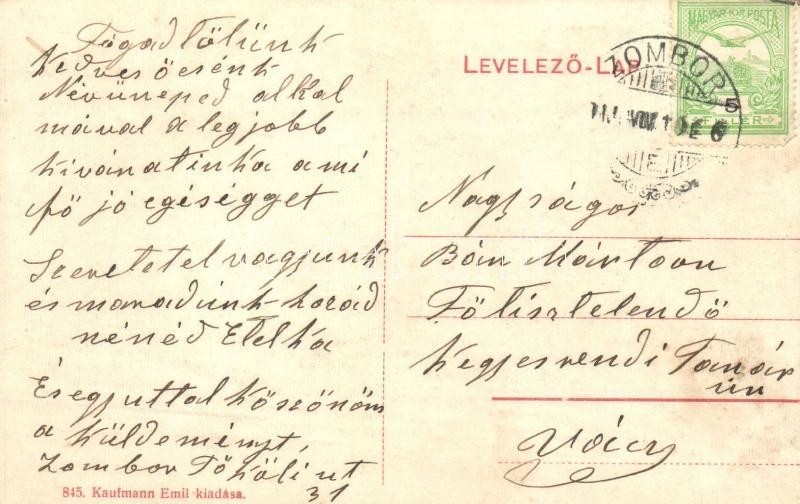 Fogad tölünk
Kedves öcsénk
Névüneped alkal
mával a legjobb
kivánatinka ami
fö jó egéségget
Szeretetel vagjunk
és maradunk hozád
nénéd Etelka
És egjuttal köszönöm
a küldeménjt,
Zombor Tököli ut
31
845. Kaufmann Emil kiadása.
LEVELEZŐ-LAP
MAGYAR KIR. POSTA
5
FILLÉR
ZOMBOR
Nagjságos
Bán Mártoon
Fötisztelendö
Kegjesrendi Tanár
úr
Vácz